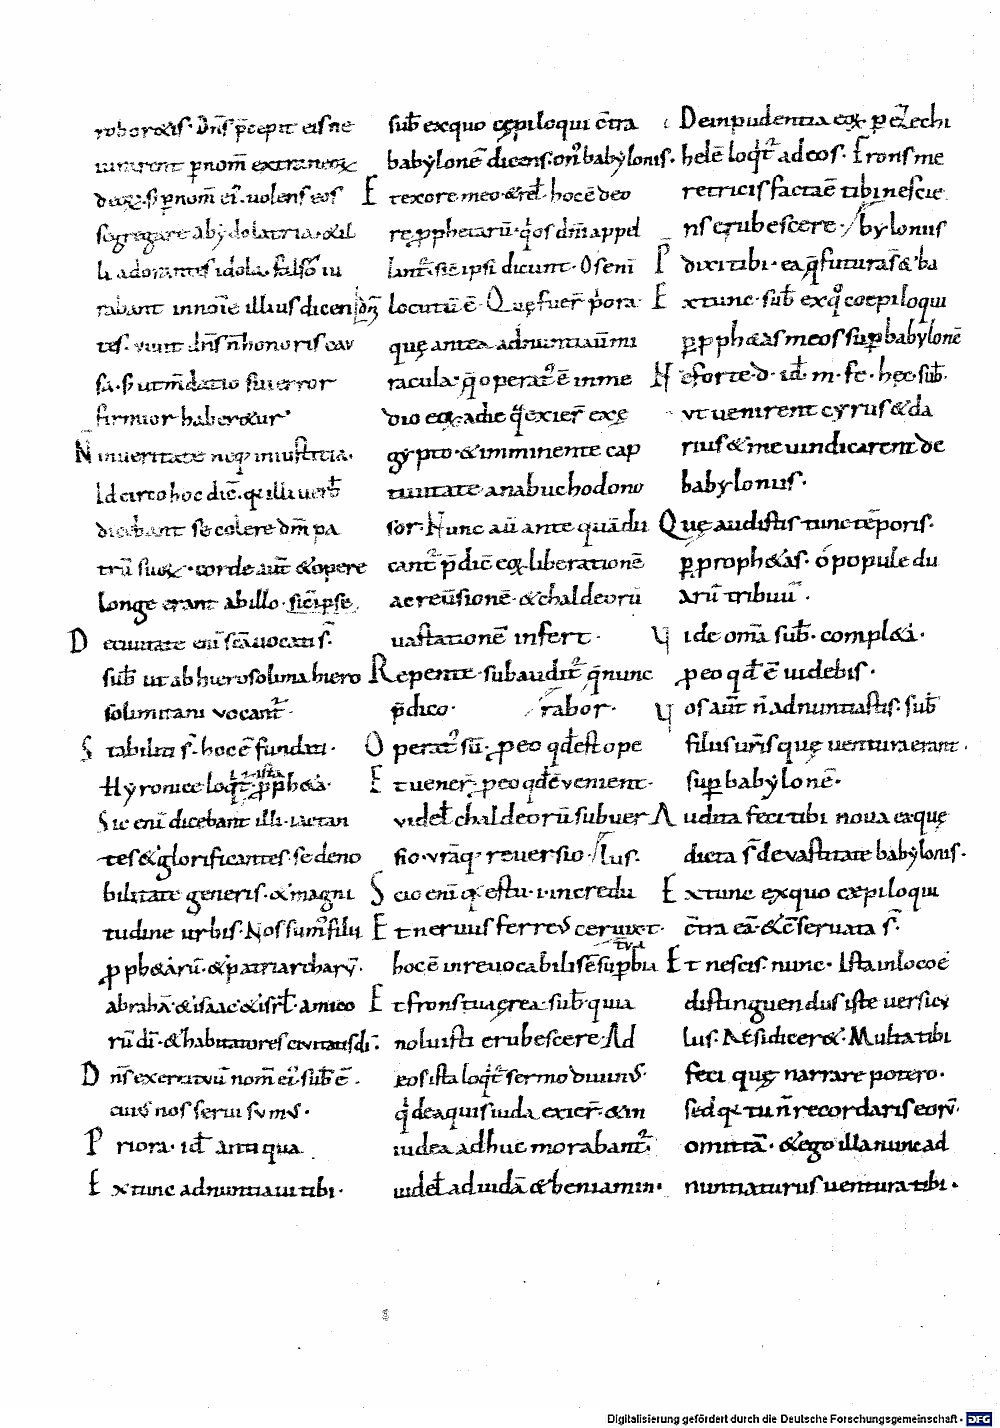 roboretis. Dn̄s p̄cepit eis ne
iurarent p nom̄ extraneoꝝ
deoꝝ. s; p nom̄ ei᷒. uolens eos
segregare ab ydolatria. & il
li adorantes idola. falso iu
rabant in noīe illius dicen
tes. uiuit dn̄s n̄ honoris cau
sa. s; ut m̄datio sui error
firmior haberetur.
N in ueritate neq; in iustitia.
Idcirco hoc dic̄. q; illi uerb̄
dicebant se colere dm̄ pa
trū suoꝝ. corde aut̄ & opere
longe erant ab illo. sic̄ ipse
D e ciuitate enī sc̄a uocati s̄.
sub̄ ut ab hierosolima hiero
solimitani vocant᷒.
S tabiliti s̄. hoc ē fundati.
Hyronice loqt᷒ ista pph&a.
Sic enī dicebant illi. iactan
tes & glorificantes se de no
bilitate generis. & magni
tudine urbis. Nos sum᷒ filii
pph&arū. & patriarcharū.
abrahā & isaac & isrl̄ amico
rū dī. & habitatores ciuitatis dī.
D n̄s exercituū nom̄ ei᷒. sub̄ ē.
cui᷒ nos serui sum᷒.
P riora. id ē antiqua
E x tunc adnuntiaui tibi.
sub̄ ex quo cępi loqui c̄tra
babylonē dicens. on᷒ babylonis.
E t ex ore meo & rel̄. hoc ē deo
re pphetarū. q̊s dm̄ appel
lant᷒. sic̄ ipsi dicunt. Os enī
dn̄i locutū ē. Quę fuer̄ p̄ora
quę antea adnuntiaui m̄i
racula. q̄ operat᷒ ē in me
dio eoꝝ. a die q̄ exier̄ ex ę
gypto. & imminente cap
tiuitate a nabuchodono
sor. Nunc aū ante quā du
cant᷒ p̄dic̄ eoꝝ liberationē
ac reūsionē. & chaldeorū
uastationē infert.
R epente. subaudit᷒ q̄ nunc
p̄dico. /rabor.
O perat᷒ sū. p eo qd̄ est ope
E t uener̄. p eo qd̄ ē uenient.
videl̄ chaldeorū subuer
sio. vrāq; reuersio. /lus.
S cio enī q; es tu. i. incredu
E t neruus ferre᷒ ceruix t.
hoc ē inreuocabilis ē supbia tua
E t frons tua ęrea. sub̄. quia
noluisti erubescere. Ad
eos ista loqt᷒ sermo diuin᷒.
q̊ de aquis iuda exier̄. & in
iudea adhuc morabant᷒.
uidel̄ ad iudā & beniamin.
De inpudentia eoꝝ p ezechi
helē loqt᷒ ad eos. Frons me
retricis facta ē tibi. nescie
ns erubescere. /bylonis
P dixi tibi. ea q̄ futura s̄ & ba
E x tunc. sub̄ ex q̊ coepi loqui
p pph&as meos sup babylonē
N e forte d. id. m. fe. hęc. sub̄.
ut uenirent cyrus & da
rius & me uindicarent de
babylonis.
Quę audistis tunc tēporis.
p proph&as. ó popule du
arū tribuū.
V ide om̄a. sub̄. compl&a.
p eo qd̄ ē uidebis.
V os aut̄ n̄ adnuntiastis. sub̄
filiis urīs quę uentura erant.
sup babylonē.
A udita feci tibi noua ex quę
dicta s̄ de vastitate babylonis.
E x tunc ex quo cæpi loqui
c̄tra eā. & c̄seruata s̄.
E t nescis. nunc. Ista in loco ē
distinguendus iste uersicu
lus. Ac si diceret. Multa tibi
feci quę narrare potero.
sed q; tu n̄ recordaris eorū.
omittā. & ego illa nunc ad
nuntiaturus uentura tibi.
Digitalisierung gefördert durch die Deutsche Forschungsgemeinschaft - DFG